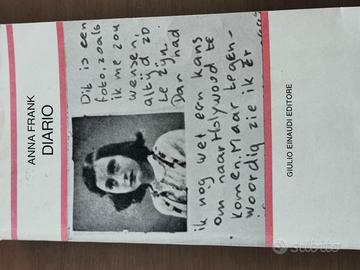 ANNA FRANK
DIARIO
Dit is een
foto, zoals
ik me zou
wensen,
altijd zo
te zijn.
Dan had
ik nog wel een kans
om naar Holywood te
komen. Maar tegen=
woordig zie ik er
GIULIO EINAUDI EDITORE
subito